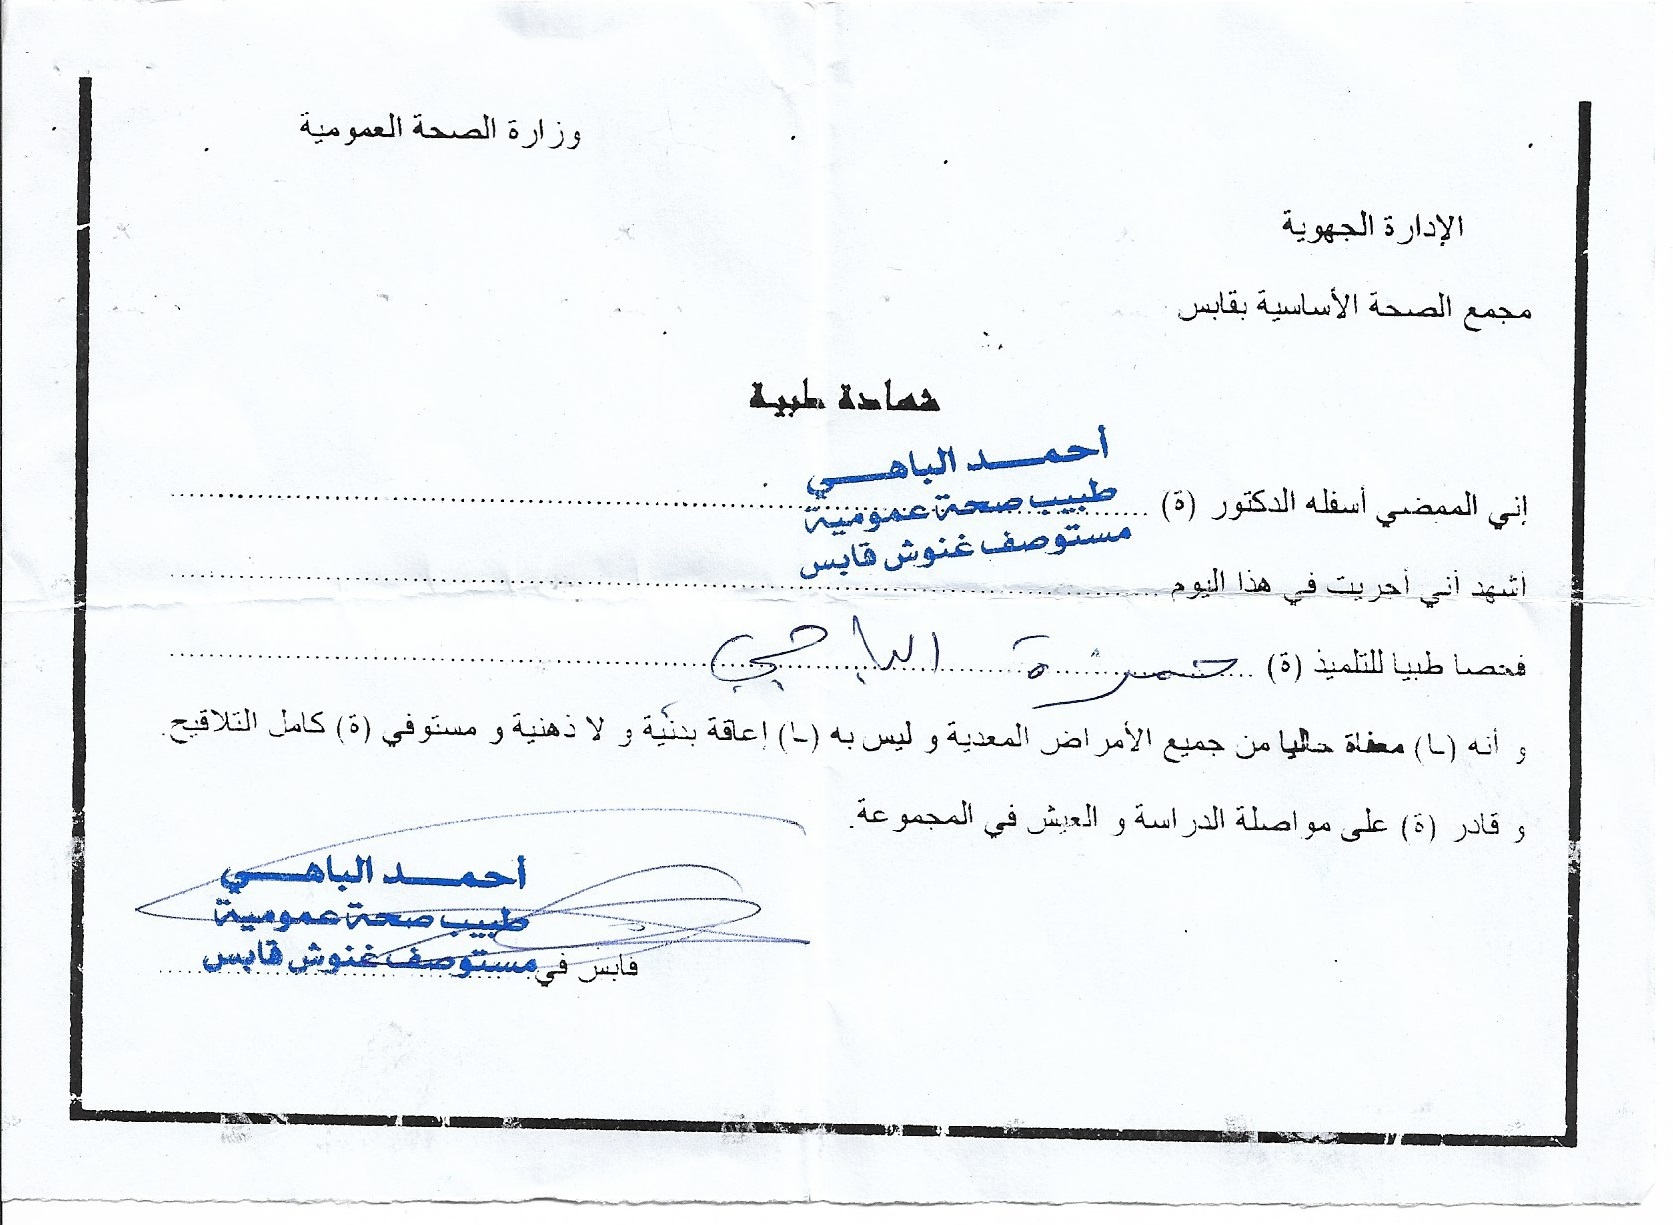 وزارة الصحة العمومية
الإدارة الجهوية
مجمع الصحة الأساسية بقابس
شهادة طبية
أحمد الباهي
طبيب صحة عمومية
مستوصف غنوش قابس
إني الممضي أسفله الدكتور (ة)
أشهد أني أجريت في هذا اليوم
فحصا طبيا للتلميذ (ة) حمزة الباجي
و أنه (ـا) معفاة حاليا من جميع الأمراض المعدية و ليس به (ـا) إعاقة بدنية و لا ذهنية و مستوفي (ة) كامل التلاقيح.
و قادر (ة) على مواصلة الدراسة و العيش في المجموعة.
أحمد الباهي
طبيب صحة عمومية
مستوصف غنوش قابس
قابس في